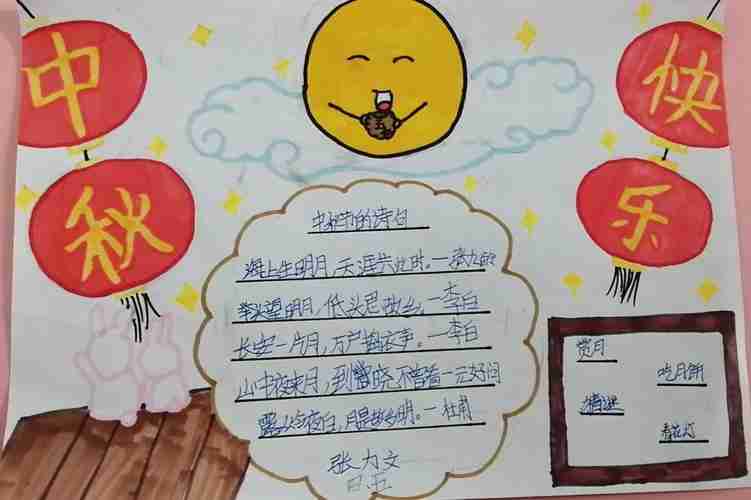 中秋
快乐
中秋节的诗句
海上生明月,天涯共此时。一张九龄
举头望明月,低头思故乡。一李白
长安一片月,万户捣衣声。一李白
山中夜来月,到晓不曾看一元好问
露从今夜白,月是故乡明。一杜甫
张力文
赏月
吃月饼
猜谜
看花灯